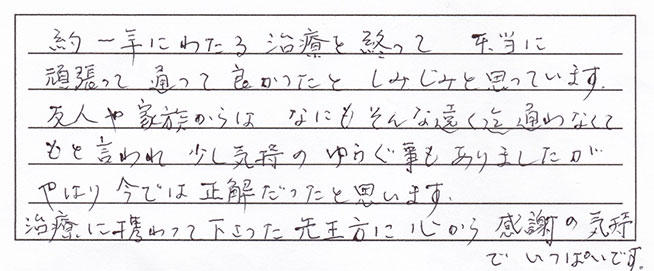 約一年にわたる 治療を終って 本当に
頑張って通って良かったと しみじみと思っています.
友人や家族からは なにもそんな遠く迄通わなくて
もと言われ 少し気持のゆらぐ事もありましたが
やはり今では正解だったと思います.
治療に携わって下さった先生方に心から感謝の気持
でいっぱいです.